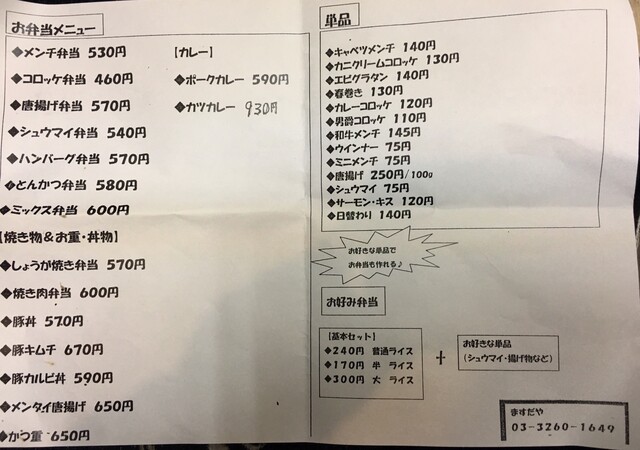 お弁当メニュー
◆メンチ弁当 530円
◆コロッケ弁当 460円
◆唐揚げ弁当 570円
◆シュウマイ弁当 540円
◆ハンバーグ弁当 570円
◆とんかつ弁当 580円
◆ミックス弁当 600円
【カレー】
◆ポークカレー 590円
◆カツカレー 930円
【焼き物＆お重・丼物】
◆しょうが焼き弁当 570円
◆焼き肉弁当 600円
◆豚丼 570円
◆豚キムチ 670円
◆豚カルビ丼 590円
◆メンタイ唐揚げ 650円
◆かつ重 650円
単品
◆キャベツメンチ 140円
◆カニクリームコロッケ 130円
◆エビグラタン 140円
◆春巻き 130円
◆カレーコロッケ 120円
◆男爵コロッケ 110円
◆和牛メンチ 145円
◆ウインナー 75円
◆ミニメンチ 75円
◆唐揚げ 250円/100g
◆シュウマイ 75円
◆サーモン・キス 120円
◆日替わり 140円
お好きな単品で
お弁当も作れる♪
お好み弁当
【基本セット】
◆240円 普通ライス
◆170円 半 ライス
◆300円 大 ライス
＋
お好きな単品
(シュウマイ・揚げ物など)
ますだや
03-3260-1649